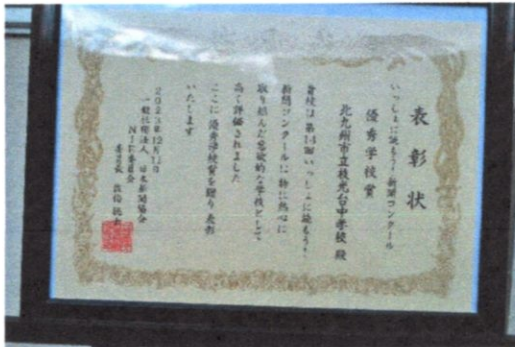 表彰状
いっしょに読もう!新聞コンクール
優秀学校賞
北九州市立枝光台中学校 殿
貴校は第14回いっしょに読もう!
新聞コンクールに特に熱心に
取り組んだ意欲的な学校として
高く評価されました
ここに優秀学校賞を贈り表彰
いたします
2023年12月13日
一般社団法人 日本新聞協会
NIE委員会
委員長